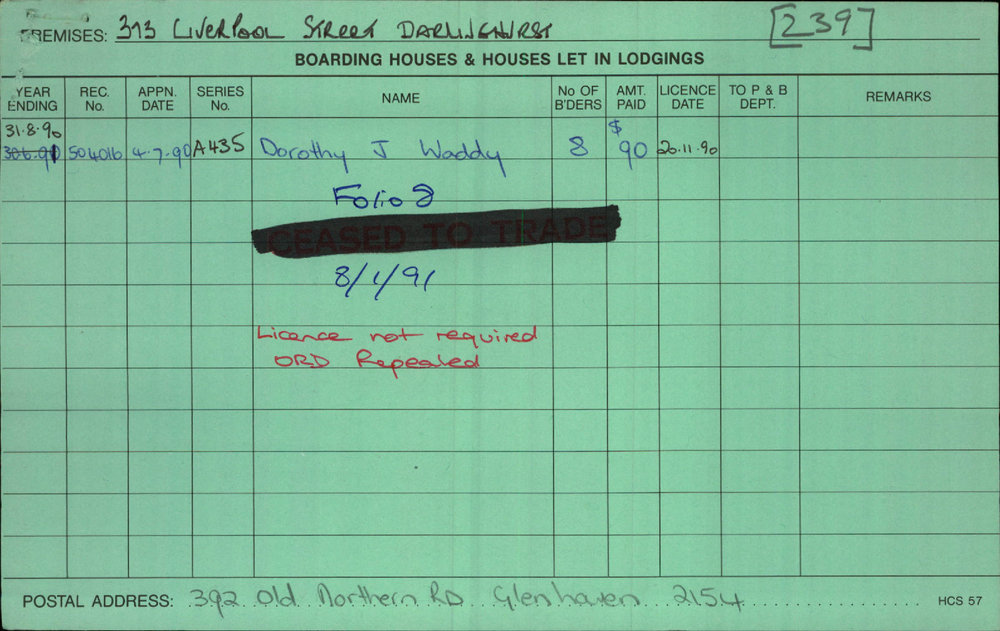 PREMISES: 313 Liverpool Street DARLINGHURST [239]
BOARDING HOUSES & HOUSES LET IN LODGINGS
YEAR ENDING REC. No. APPN. DATE SERIES No. NAME No OF B'DERS AMT. PAID LICENCE DATE TO P & B DEPT. REMARKS
31·8·90 $
504016 4·7·90 A435 Dorothy J Waddy 8 90 20·11·90
Folio 2
CEASED TO TRADE
8/1/91
Licence not required
ORD Repealed
POSTAL ADDRESS: 392 Old Northern RD Glenhaven 2154 HCS 57